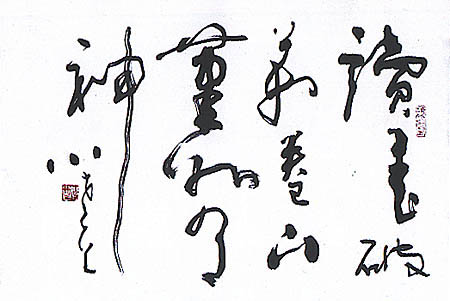 讀書破
萬卷下
筆如有
神